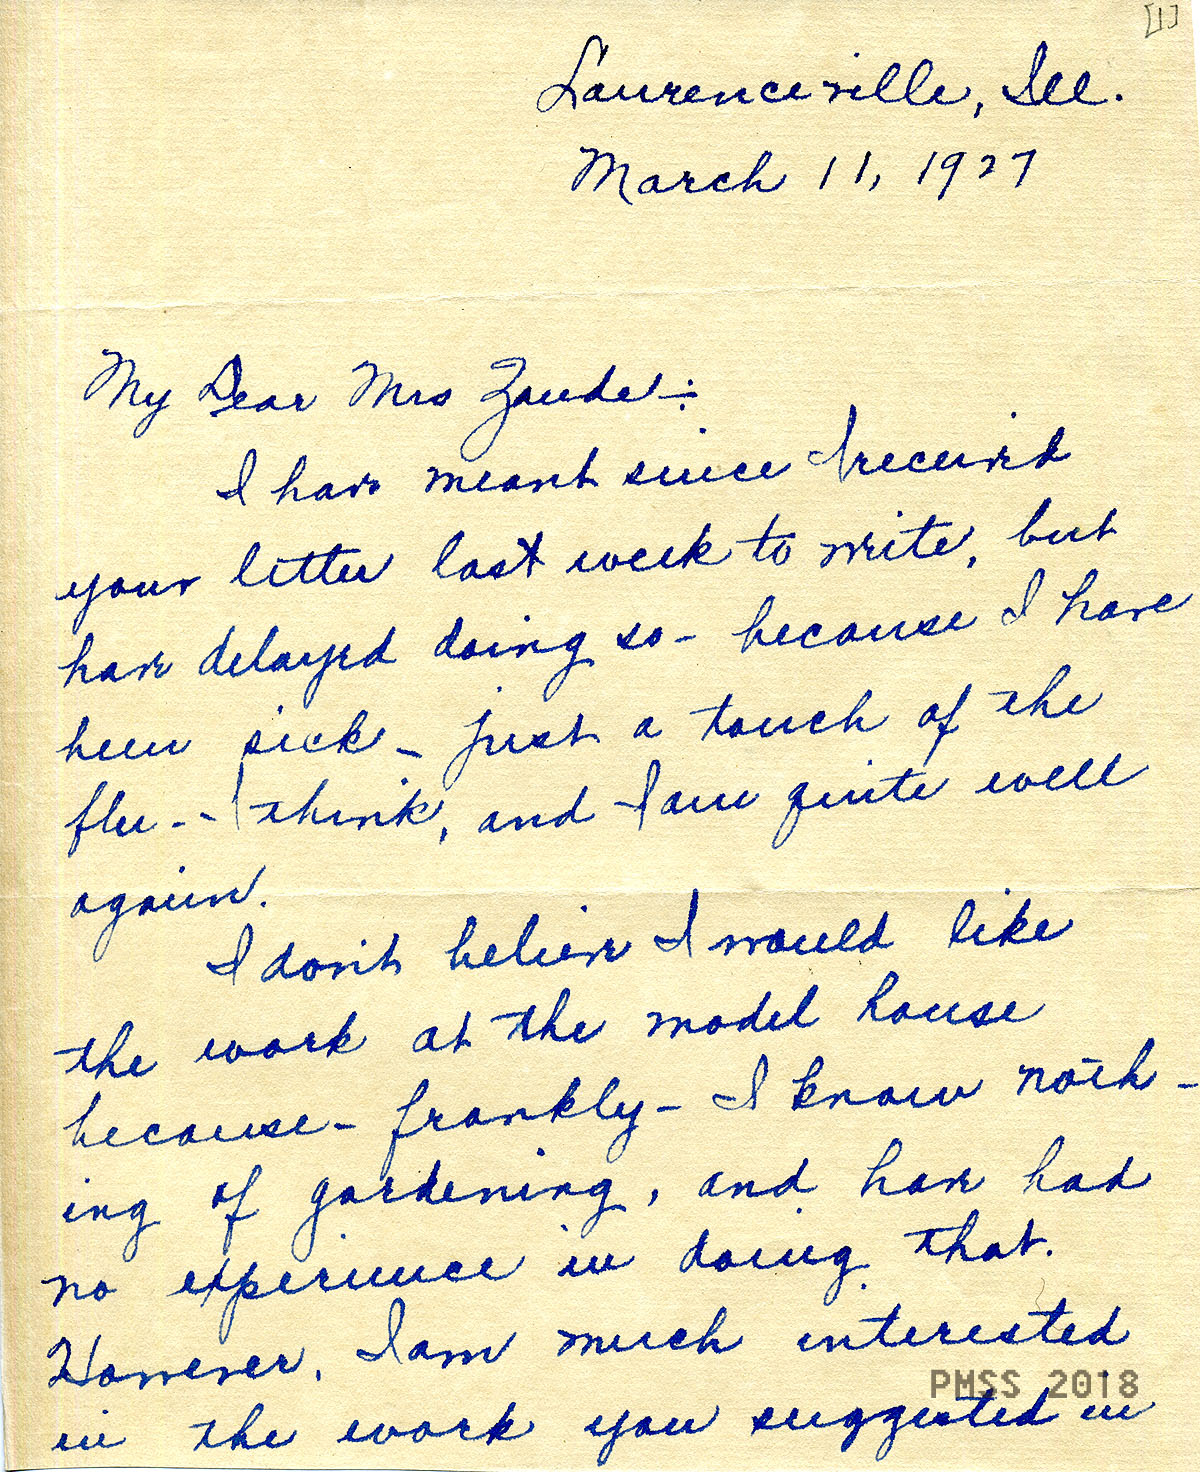 [1]
Lawrenceville, Ill.
March 11, 1927
My Dear Mrs Zande:
I have meant since I received
your letter last week to write, but
have delayed doing so - because I have
been sick - just a touch of the
flu - I think, and I am quite well
again.
I don't believe I would like
the work at the model house
because - frankly - I know noth-
ing of gardening, and have had
no experience in doing that.
However, I am much interested
in the work you suggested in
PMSS 2018